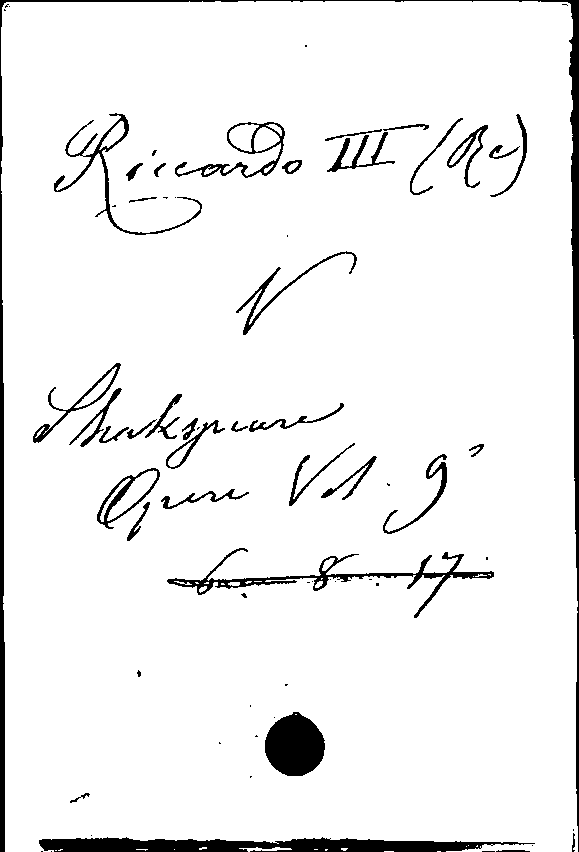 Riccardo III (Re)
V
Shakspeare
Opere Vol. 9°
6. 8. 17